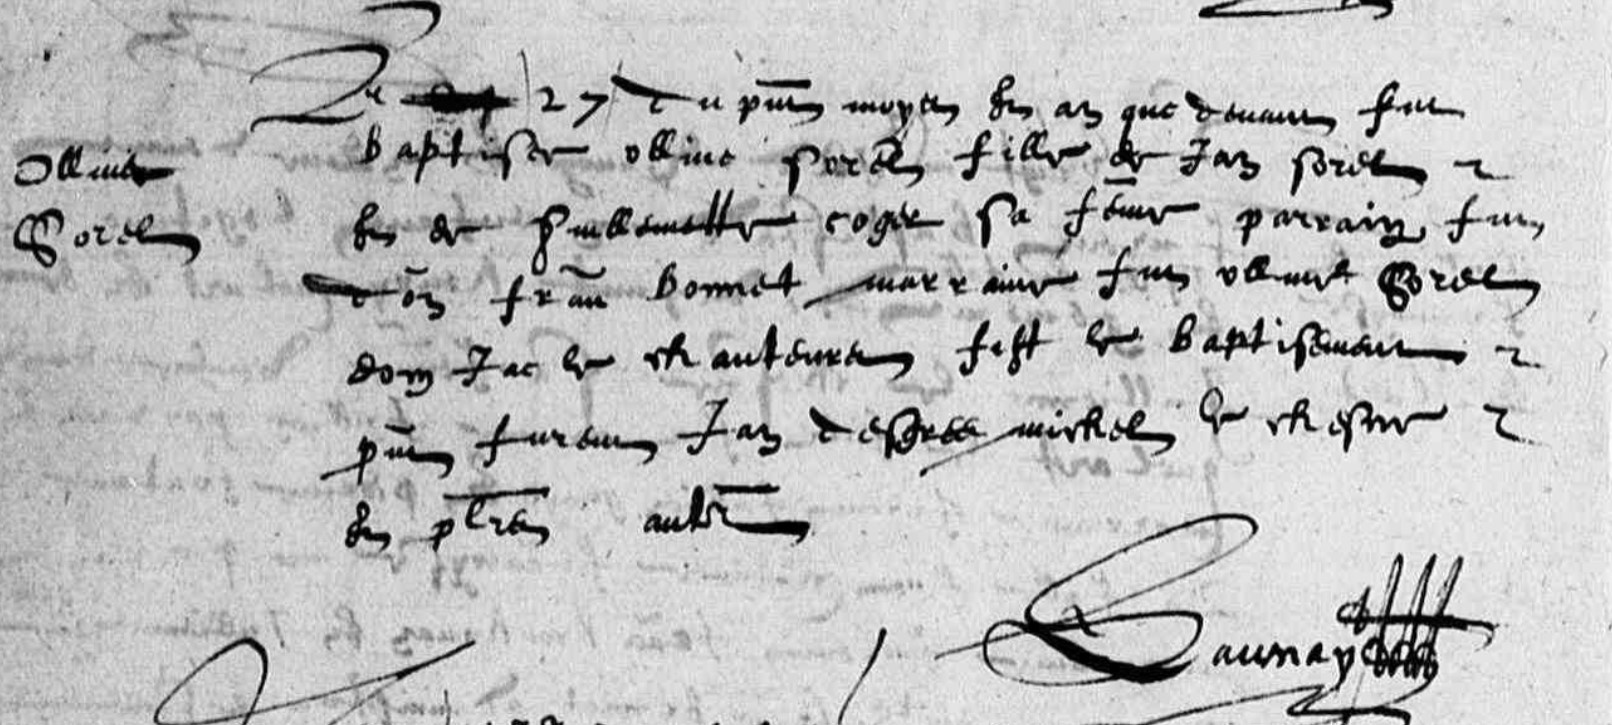 Ollive
Sorel
Le 27 du pnt moys en an que devant fut
baptisee ollive sorel fille de Jan sorel
et de Guillemette coger sa feme parrain fut
dom fran bonnet marraine fut ollive Sorel
dom Jac le chanteurel fist le baptisement
pnt furent Jan desgree michel le chesne
et plres aultr
Launay